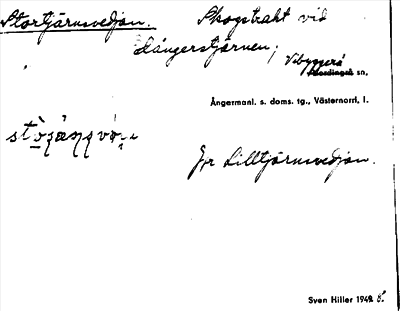 Stortjärnsvedjan. Skogstrakt vid
Långerstjärnen;
Vibyggerå
Nordingrå sn,
Ångermanl. s. doms. tg., Västernorrl. l.
Jfr Lilltjärnsvedjan.
Sven Hiller 1948.